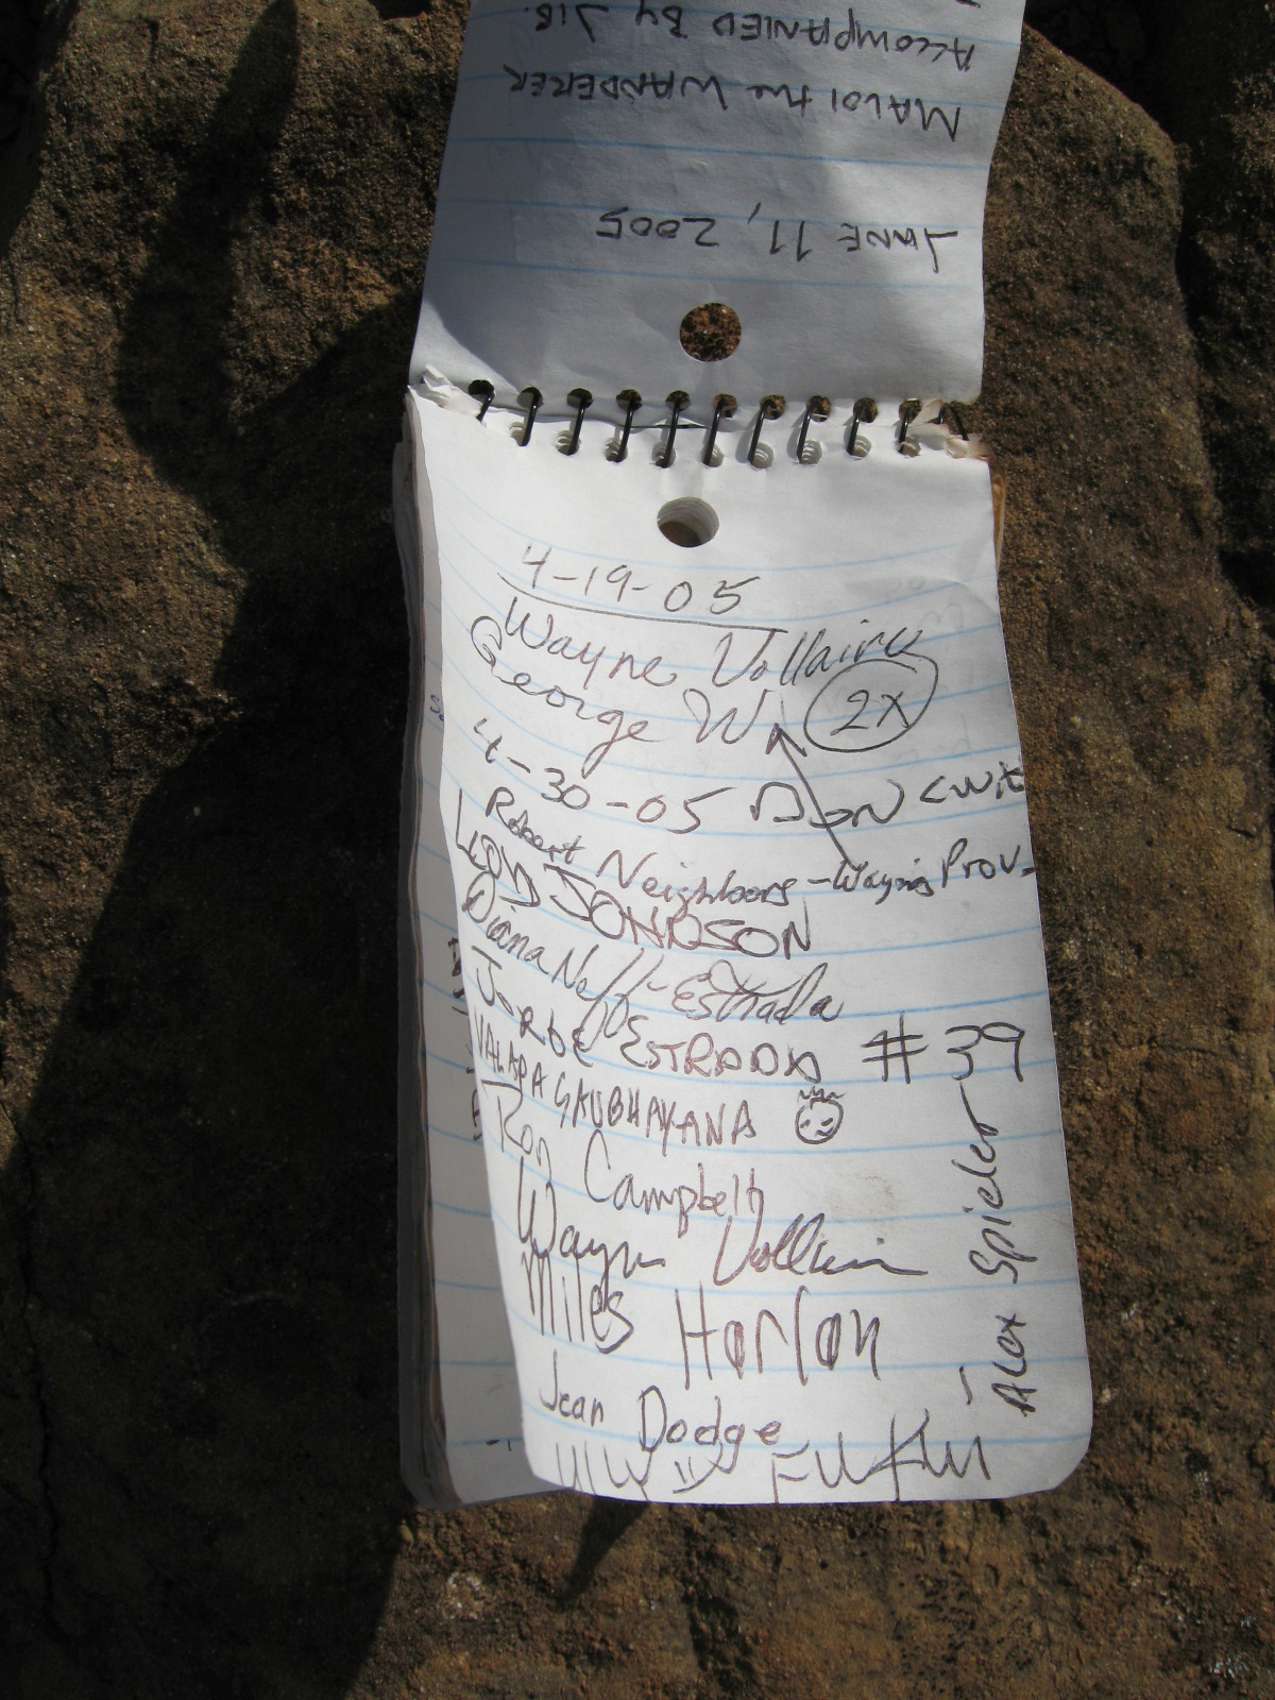 JUNE 11, 2005
MALOI the WANDERER
ACCOMPANIED By JIB.
4-19-05
Wayne Vollaire
George W. 2X
4-30-05 DON
Robert Neighbors - Wayne's Prov.
LLOYD JOHNSON
Diana Neff-Estrada
JORGE ESTRADA #39
VALAPA GAUBHAYANA
Ron Campbell
Wayne Vollaire
Miles Harlan
Jean Dodge
Alex Spieler